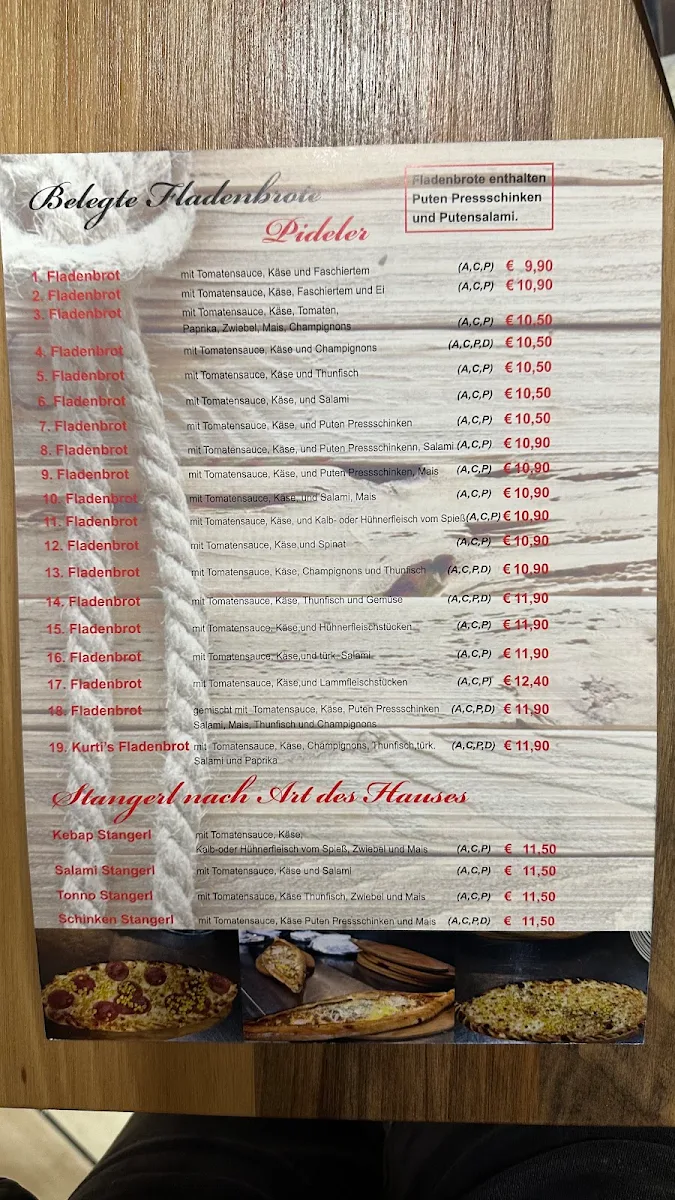 Belegte Fladenbrote
Pideler
Fladenbrote enthalten
Puten Pressschinken
und Putensalami.
1. Fladenbrot mit Tomatensauce, Käse und Faschiertem (A,C,P) € 9,90
2. Fladenbrot mit Tomatensauce, Käse, Faschiertem und Ei (A,C,P) € 10,90
3. Fladenbrot mit Tomatensauce, Käse, Tomaten,
Paprika, Zwiebel, Mais, Champignons (A,C,P) € 10,50
4. Fladenbrot mit Tomatensauce, Käse und Champignons (A,C,P,D) € 10,50
5. Fladenbrot mit Tomatensauce, Käse und Thunfisch (A,C,P) € 10,50
6. Fladenbrot mit Tomatensauce, Käse, und Salami (A,C,P) € 10,50
7. Fladenbrot mit Tomatensauce, Käse, und Puten Pressschinken (A,C,P) € 10,50
8. Fladenbrot mit Tomatensauce, Käse, und Puten Pressschinkenn, Salami (A,C,P) € 10,90
9. Fladenbrot mit Tomatensauce, Käse, und Puten Pressschinken, Mais (A,C,P) € 10,90
10. Fladenbrot mit Tomatensauce, Käse, und Salami, Mais (A,C,P) € 10,90
11. Fladenbrot mit Tomatensauce, Käse, und Kalb- oder Hühnerfleisch vom Spieß (A,C,P) € 10,90
12. Fladenbrot mit Tomatensauce, Käse und Spinat (A,C,P) € 10,90
13. Fladenbrot mit Tomatensauce, Käse, Champignons und Thunfisch (A,C,P,D) € 10,90
14. Fladenbrot mit Tomatensauce, Käse, Thunfisch und Gemüse (A,C,P,D) € 11,90
15. Fladenbrot mit Tomatensauce, Käse,und Hühnerfleischstücken (A,C,P) € 11,90
16. Fladenbrot mit Tomatensauce, Käse,und türk. Salami (A,C,P) € 11,90
17. Fladenbrot mit Tomatensauce, Käse,und Lammfleischstücken (A,C,P) € 12,40
18. Fladenbrot gemischt mit Tomatensauce, Käse, Puten Pressschinken (A,C,P,D) € 11,90
Salami, Mais, Thunfisch und Champignons
19. Kurti's Fladenbrot mit Tomatensauce, Käse, Champignons, Thunfisch,türk. (A,C,P,D) € 11,90
Salami und Paprika
Stangerl nach Art des Hauses
Kebap Stangerl mit Tomatensauce, Käse,
Kalb-oder Hühnerfleisch vom Spieß, Zwiebel und Mais (A,C,P) € 11,50
Salami Stangerl mit Tomatensauce, Käse und Salami (A,C,P) € 11,50
Tonno Stangerl mit Tomatensauce, Käse Thunfisch, Zwiebel und Mais (A,C,P) € 11,50
Schinken Stangerl mit Tomatensauce, Käse Puten Pressschinken und Mais (A,C,P,D) € 11,50